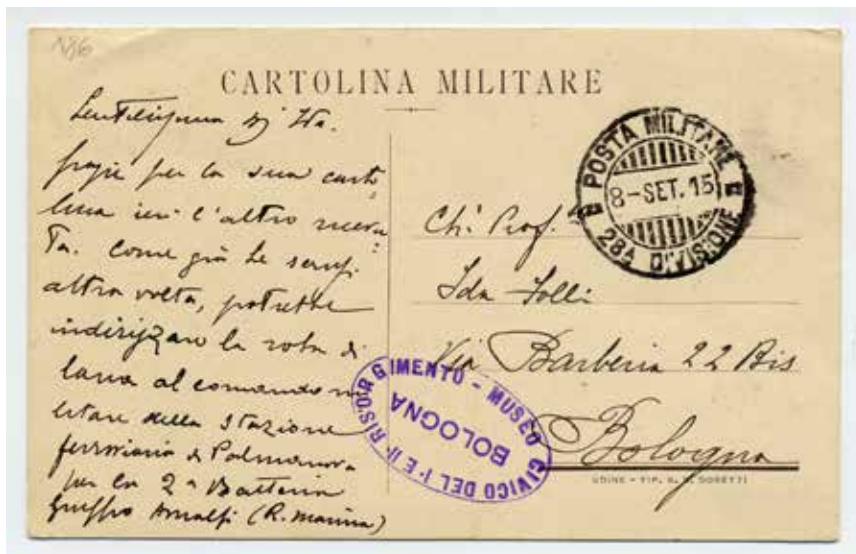 186
CARTOLINA MILITARE
Gentilissima Sig. Ida.
grazie per la sua carto
lina ieri l'altro ricevu
ta. Come già Le scrissi
altra volta, potrebbe
indirizzare la roba di
lana al comando mi
litare della Stazione
ferroviaria di Palmanova
per la 2ª Batteria
Gruppo Amalfi (R. Marina)
POSTA MILITARE
8-SET.15
28A DIVISIONE
Ch. Prof.
Ida Folli
Via Barberia 22 Bis
Bologna
MUSEO CIVICO DEL I° E II° RISORGIMENTO -
BOLOGNA
UDINE - TIP. G. B. DORETTI